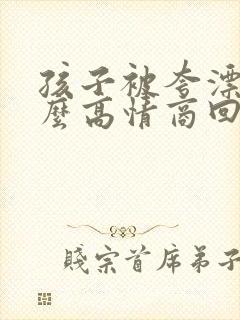 孩子被夸漂
麼高情商回
賤宗首席弟子